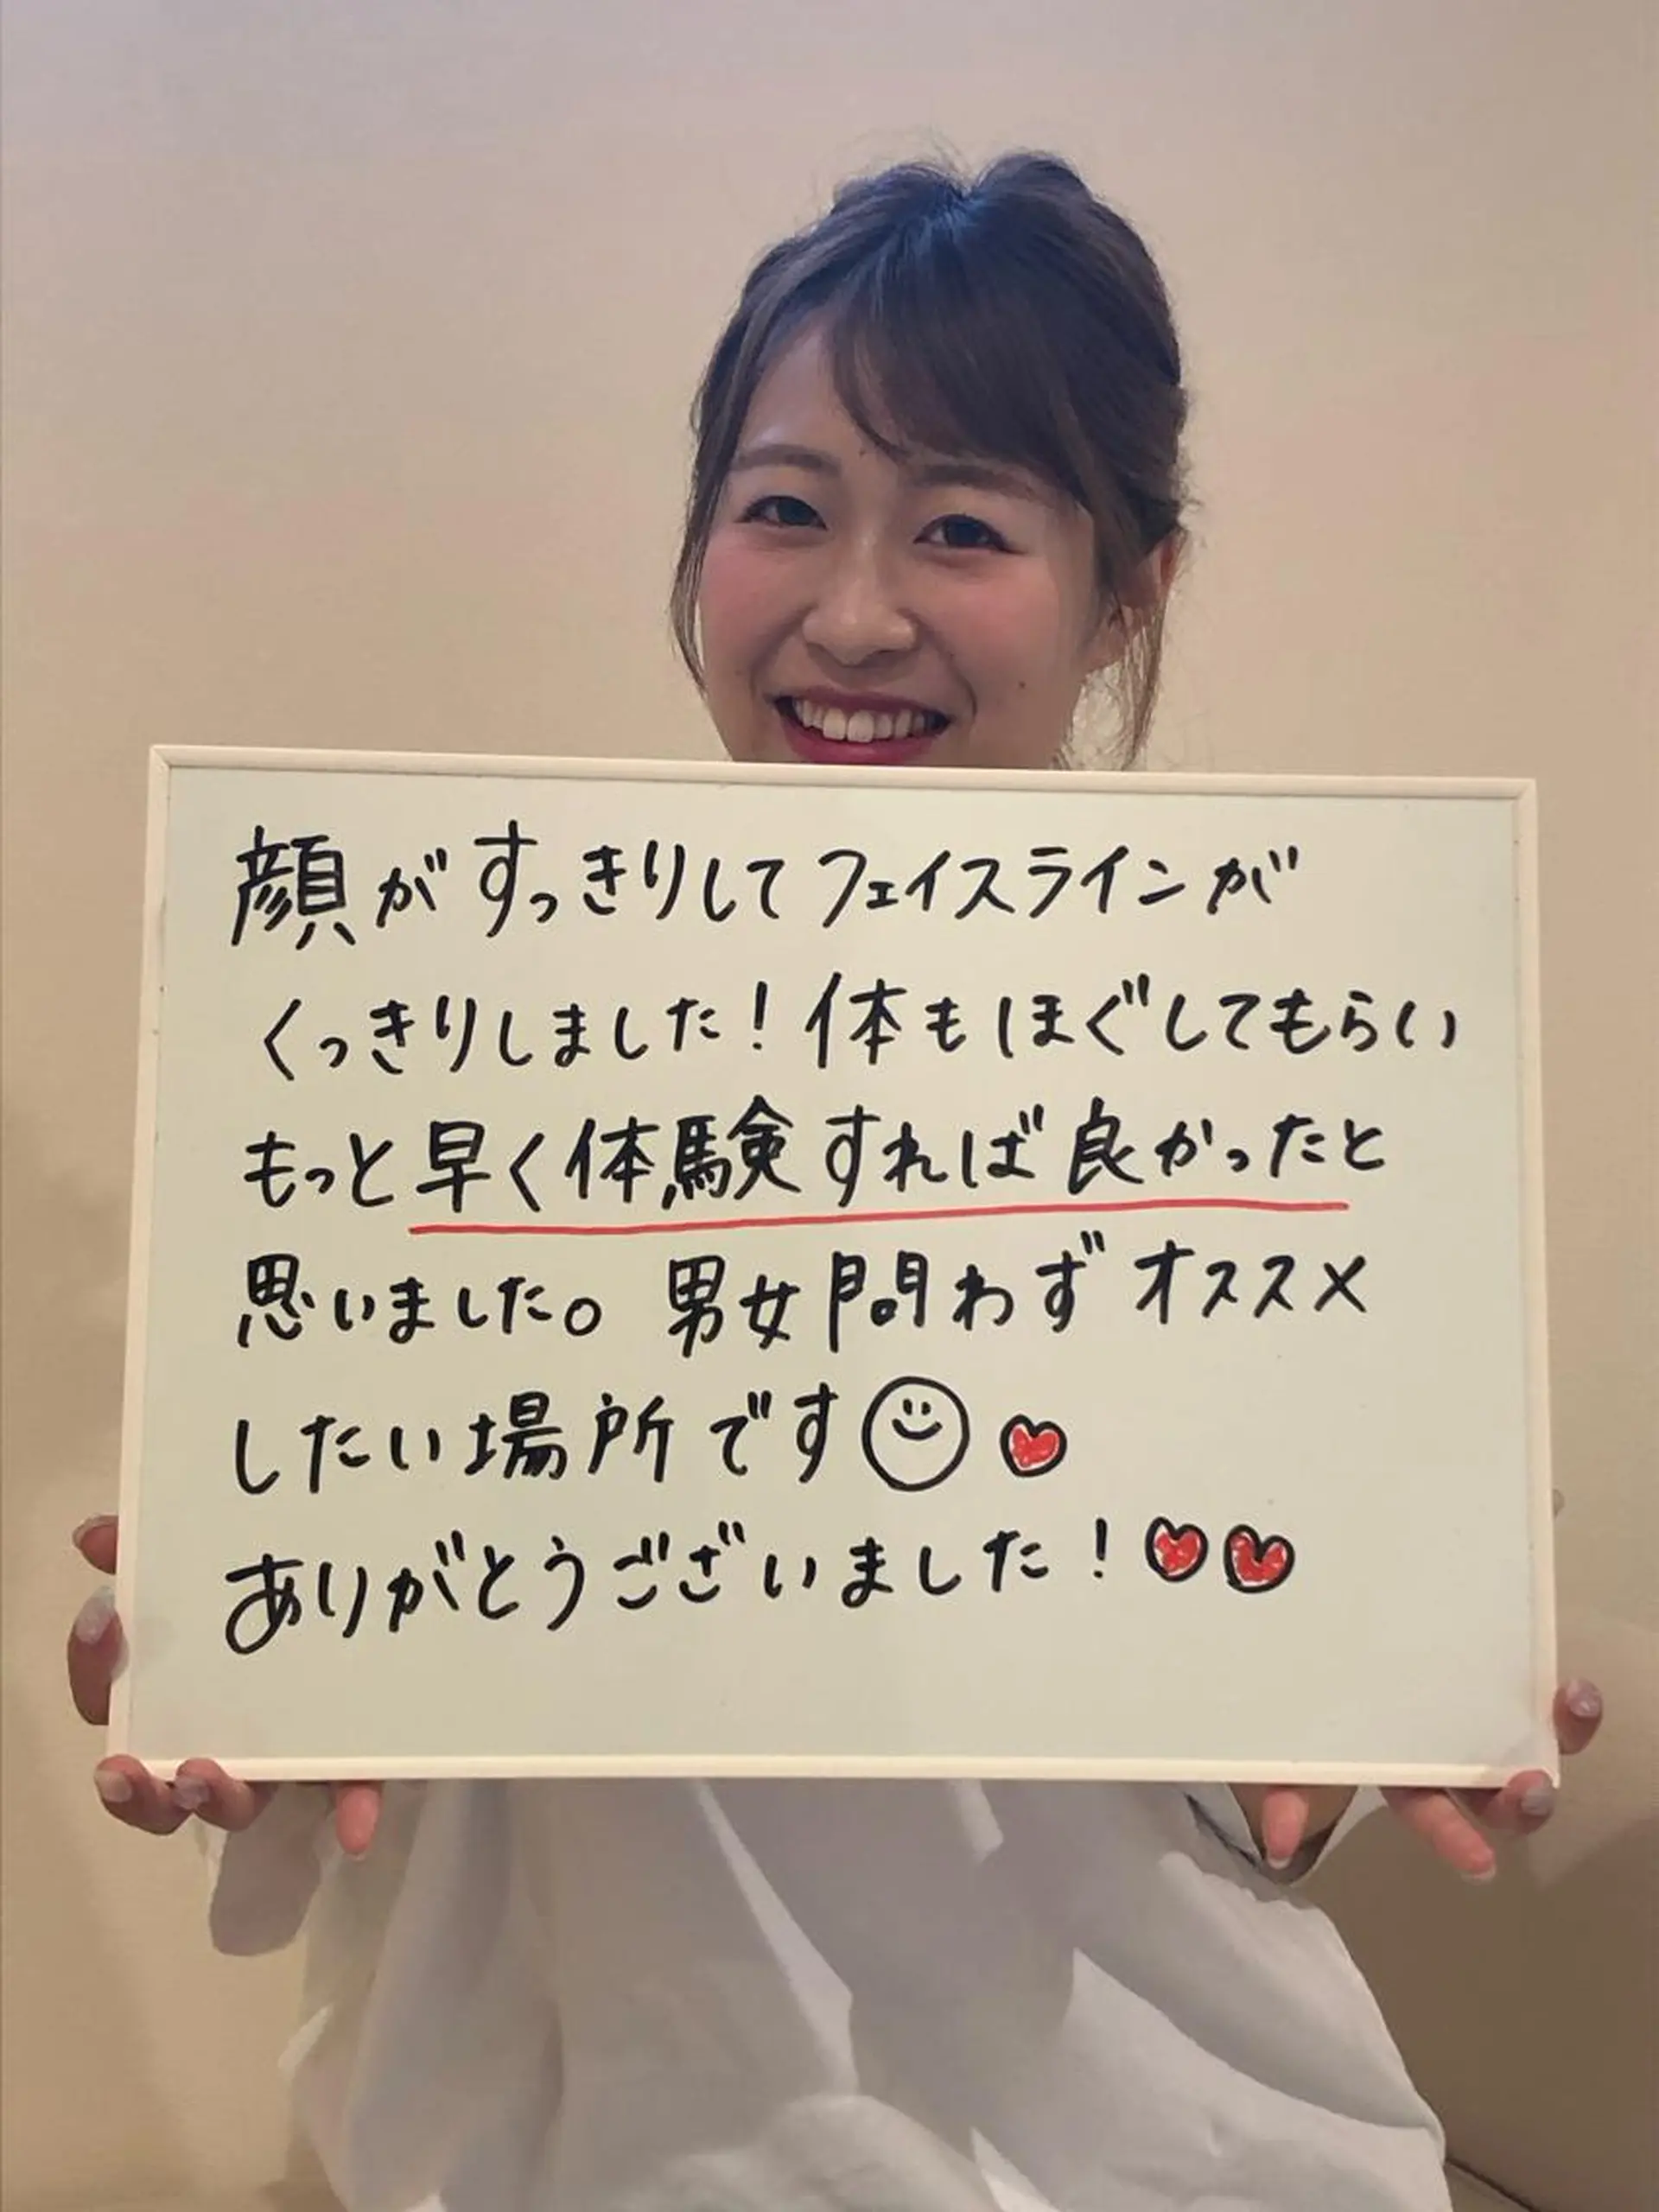 顔がすっきりしてフェイスラインが
くっきりしました!体もほぐしてもらい
もっと早く体験すれば良かったと
思いました。男女問わずオススメ
したい場所です
ありがとうございました!